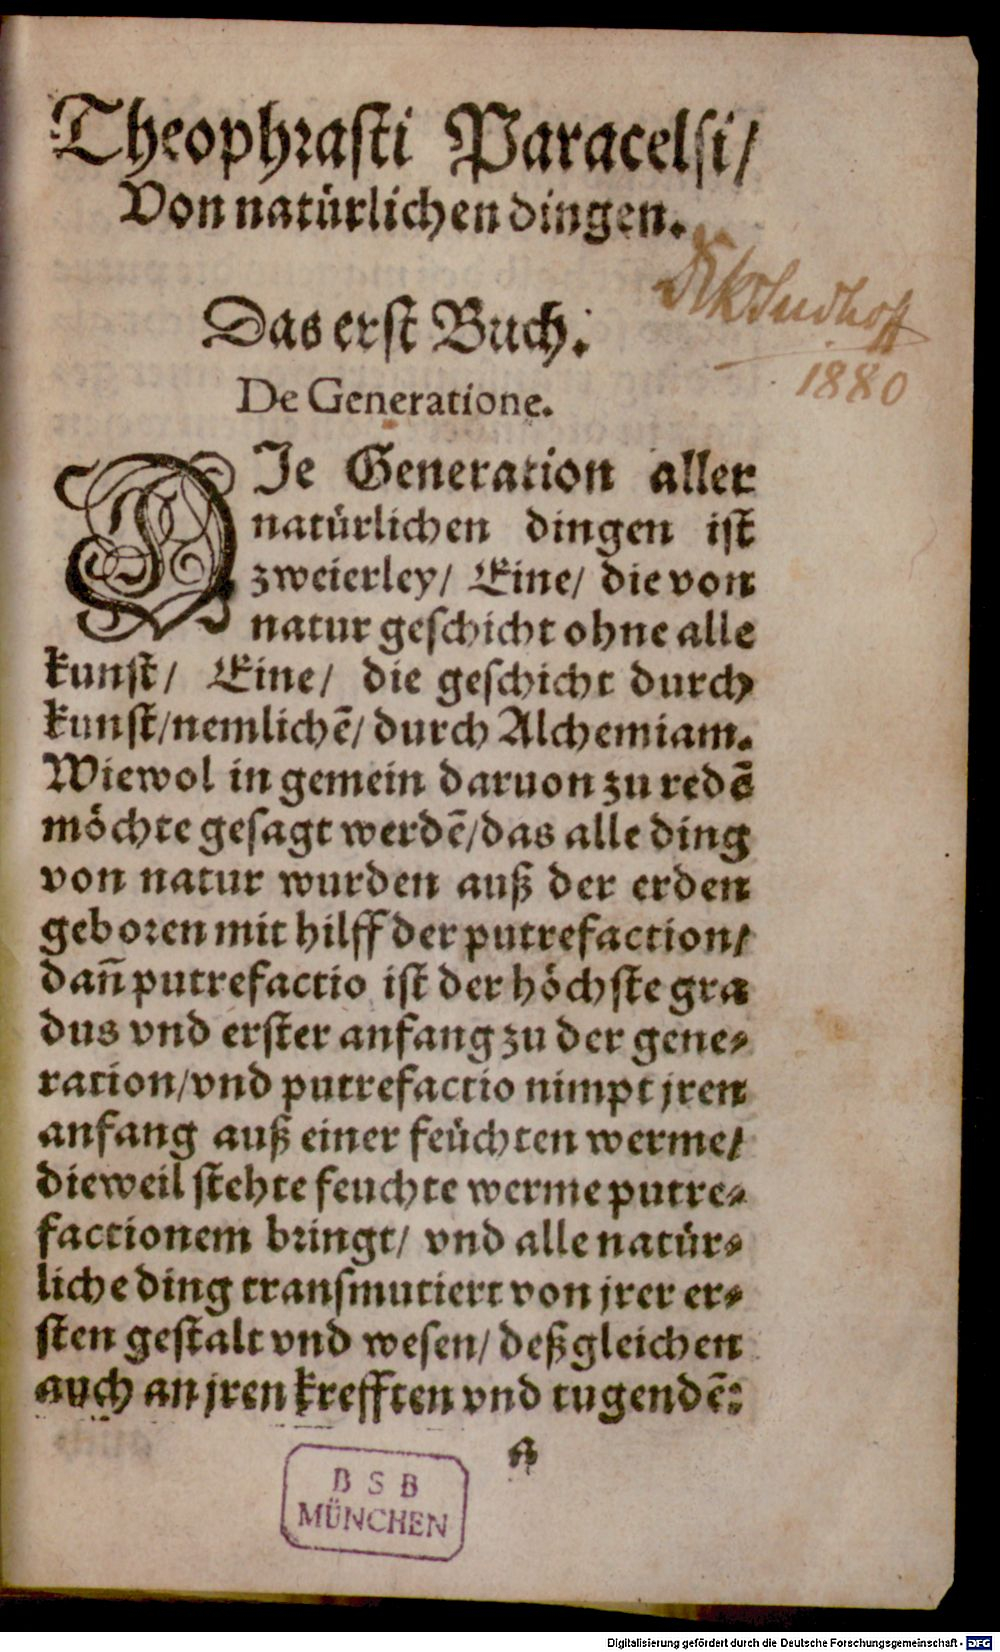 Theophrasti Paracelsi/
Von natürlichen dingen.
Das erst Buch.
De Generatione.
DJe Generation aller
natürlichen dingen ist
zweierley/ Eine/ die von
natur geschicht ohne alle
kunst/ Eine/ die geschicht durch
kunst/nemlichē/ durch Alchemiam.
Wiewol in gemein daruon zu redē
möchte gesagt werdē/das alle ding
von natur wurden auß der erden
geboren mit hilff der putrefaction/
dañ putrefactio ist der höchste gra
dus vnd erster anfang zu der gene-
ration/vnd putrefactio nimpt jren
anfang auß einer feüchten werme/
dieweil stehte feuchte werme putre-
factionem bringt/ vnd alle natür-
liche ding transmutiert von jrer er-
sten gestalt vnd wesen/ deßgleichen
auch an jren krefften vnd tugendē:
Sudhoff
1880
B S B
MÜNCHEN
Digitalisierung gefördert durch die Deutsche Forschungsgemeinschaft - DFG